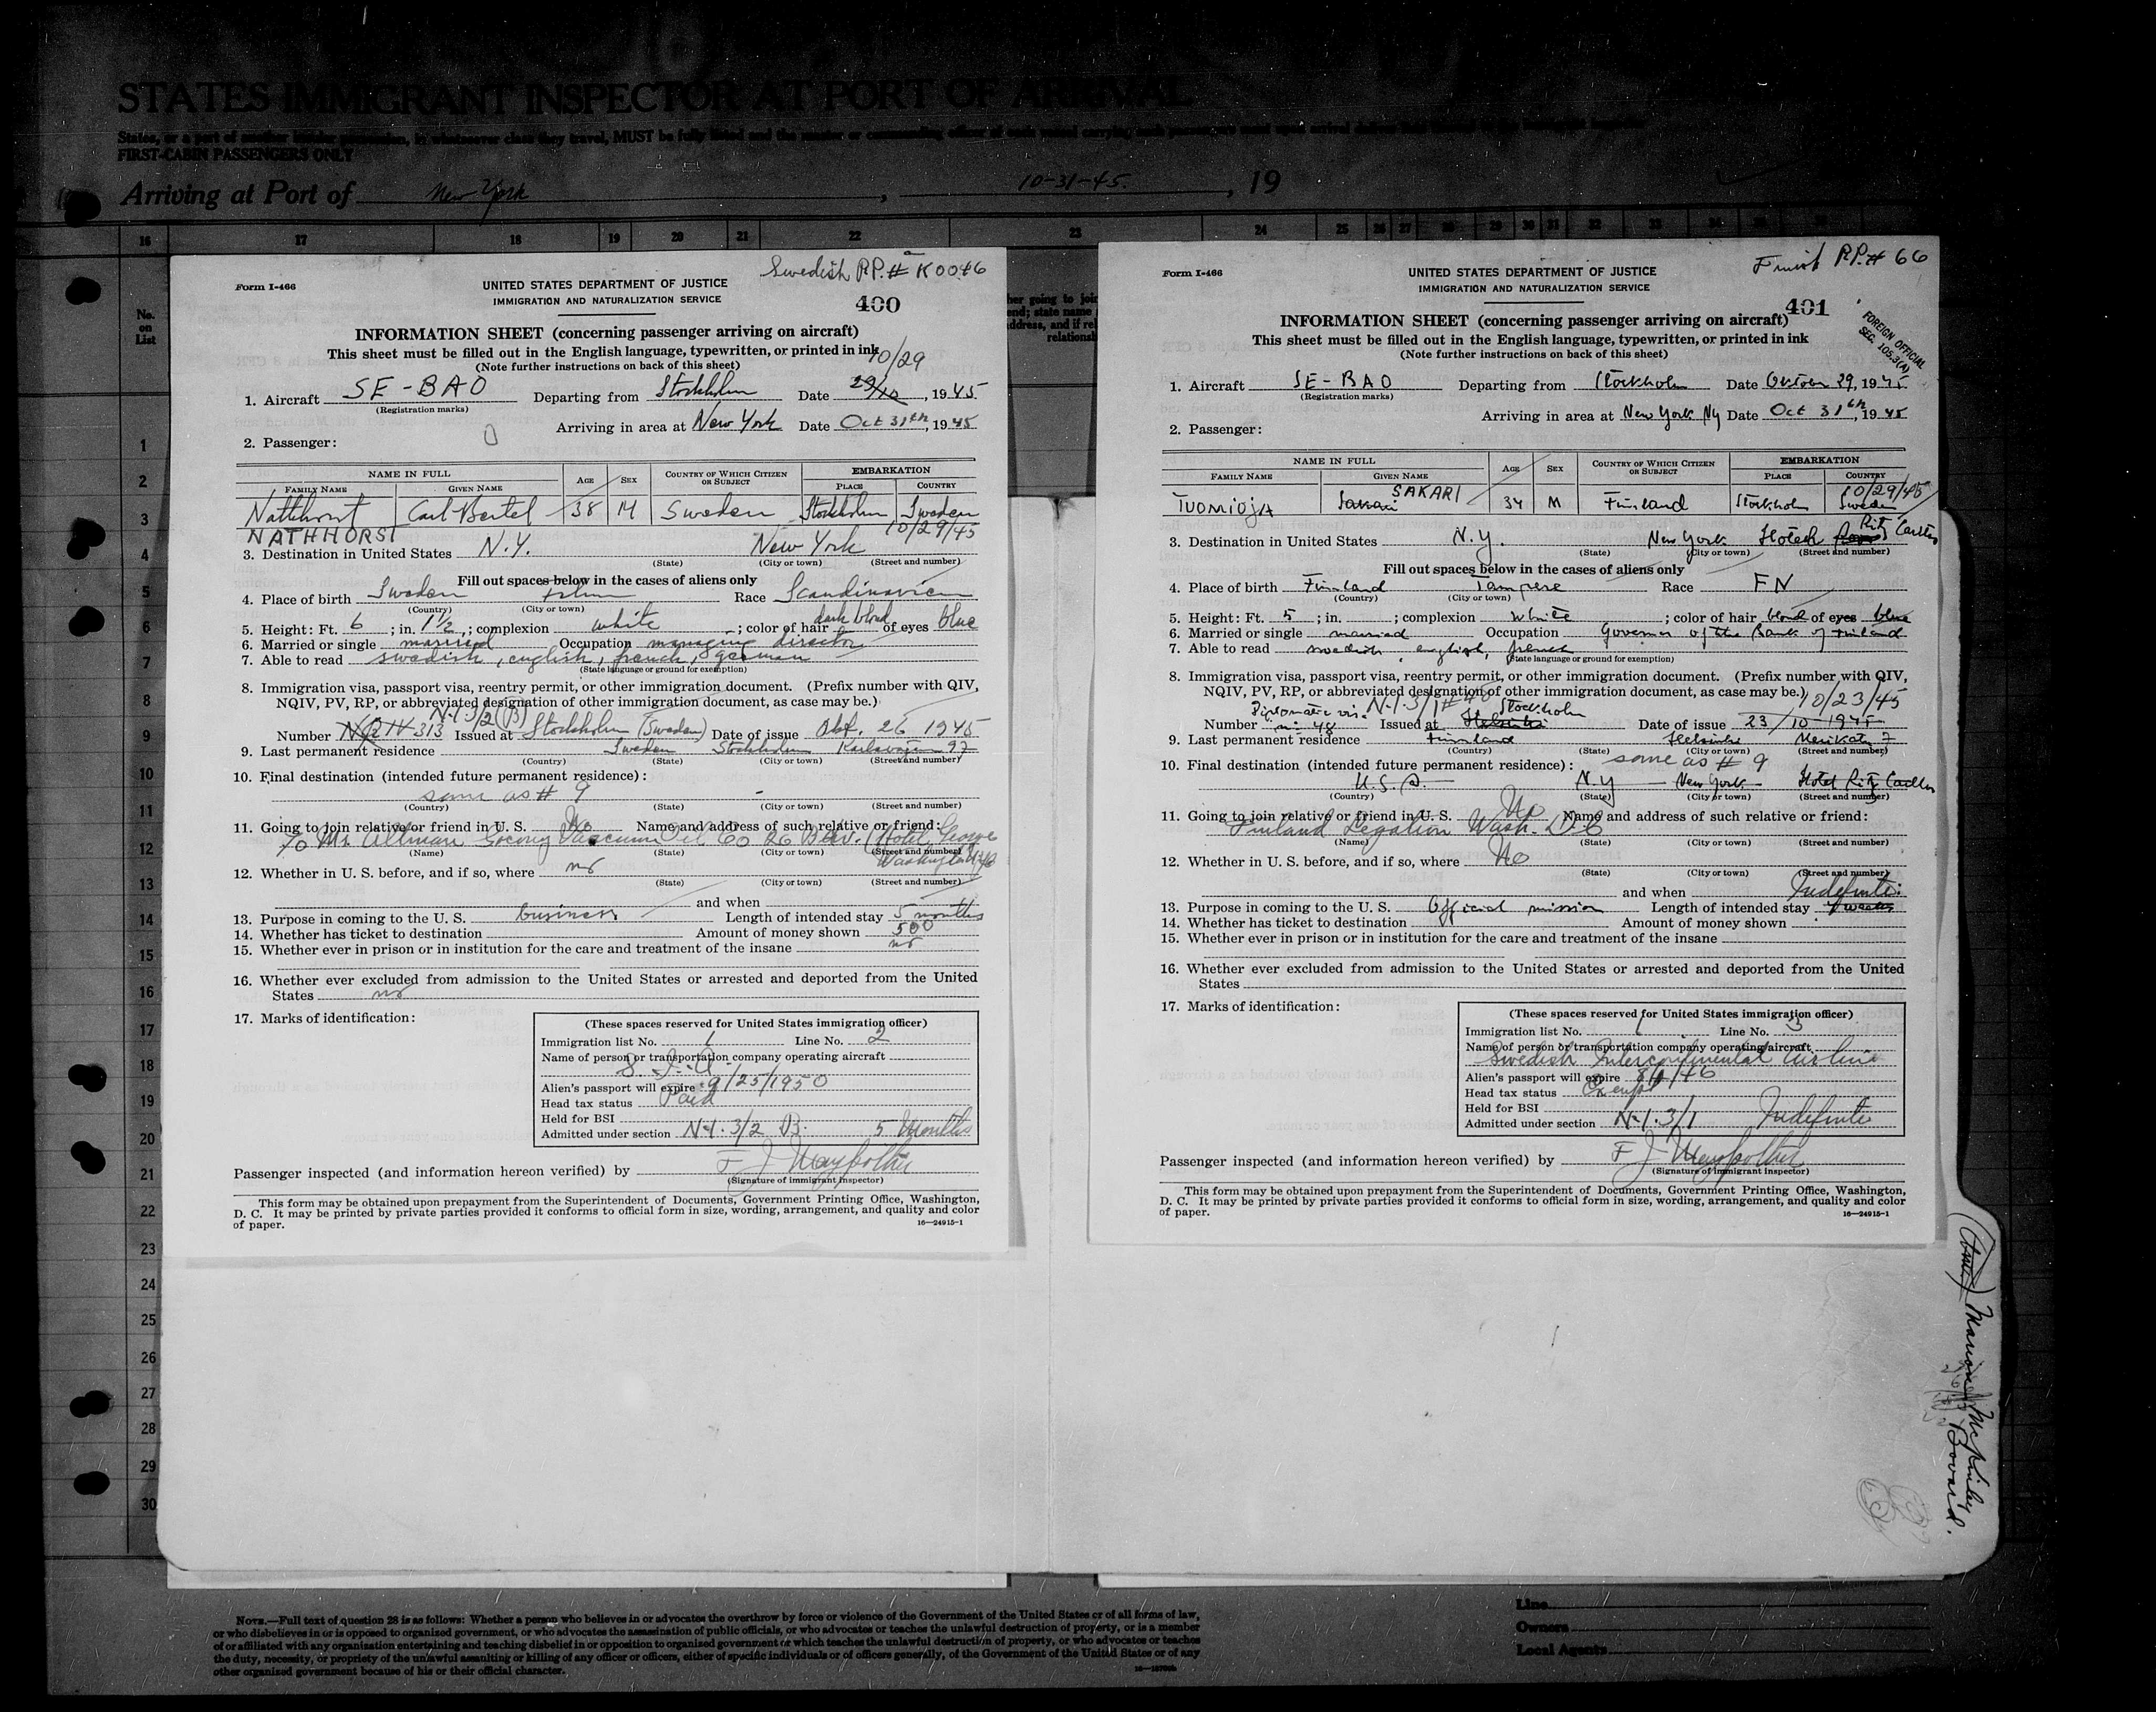 STATES IMMIGRANT INSPECTOR AT PORT OF ARRIVAL
FIRST-CABIN PASSENGERS ONLY
Arriving at Port of New York, 10-31-45, 19
16 17 18 19 20 21 22 23 24 25 26 27 28 29 30 31 32 33 34
No. on List
1
2
3
4
5
6
7
8
9
10
11
12
13
14
15
16
17
18
19
20
21
22
23
24
25
26
27
28
29
30
Swedish PP.# K0046
Form I-466
UNITED STATES DEPARTMENT OF JUSTICE
IMMIGRATION AND NATURALIZATION SERVICE
400
INFORMATION SHEET (concerning passenger arriving on aircraft)
This sheet must be filled out in the English language, typewritten, or printed in ink
(Note further instructions on back of this sheet)
10/29
1. Aircraft SE-BAO Departing from Stockholm Date 29/10, 1945
(Registration marks)
Arriving in area at New York Date Oct 31th, 1945
2. Passenger:
NAME IN FULL AGE SEX COUNTRY OF WHICH CITIZEN OR SUBJECT EMBARKATION
FAMILY NAME GIVEN NAME PLACE COUNTRY
Natthorst Carl-Bertel 38 M Sweden Stockholm Sweden
NATHHORST 10/29/45
3. Destination in United States N.Y. New York
(State) (City or town) (Street and number)
Fill out spaces below in the cases of aliens only
4. Place of birth Sweden Race Scandinavien
(Country) (City or town)
5. Height: Ft. 6; in. 1 1/2; complexion white; color of hair dark blond of eyes blue
6. Married or single married Occupation managing director
7. Able to read swedish, english, french, german
(State language or ground for exemption)
8. Immigration visa, passport visa, reentry permit, or other immigration document. (Prefix number with QIV,
NQIV, PV, RP, or abbreviated designation of other immigration document, as case may be.)
N-1 3/2 (B)
Number NQIV-313 Issued at Stockholm (Sweden) Date of issue Okt. 26 1945
9. Last permanent residence Sweden Stockholm Karlavägen 97
(Country) (State) (City or town) (Street and number)
10. Final destination (intended future permanent residence):
same as # 9
(Country) (State) (City or town) (Street and number)
11. Going to join relative or friend in U. S. No Name and address of such relative or friend:
℅ Mr. Altman Socony Vacuum Oil Co 26 Bdw. (Hotel George
(Name) (State) (City or town) (Street and number)
Washington
12. Whether in U. S. before, and if so, where no
(State) (City or town) (Street and number)
and when
13. Purpose in coming to the U. S. business Length of intended stay 5 months
14. Whether has ticket to destination Amount of money shown 500
15. Whether ever in prison or in institution for the care and treatment of the insane no
16. Whether ever excluded from admission to the United States or arrested and deported from the United
States no
17. Marks of identification:
(These spaces reserved for United States immigration officer)
Immigration list No. 1 Line No. 2
Name of person or transportation company operating aircraft
S. I. A.
Alien's passport will expire 9/25/1950
Head tax status Paid
Held for BSI
Admitted under section N-1. 3/2 B. 5 Months
Passenger inspected (and information hereon verified) by F J Maypother
(Signature of immigrant inspector)
This form may be obtained upon prepayment from the Superintendent of Documents, Government Printing Office, Washington,
D. C. It may be printed by private parties provided it conforms to official form in size, wording, arrangement, and quality and color
of paper.
16—24915-1
PP.# 66
Form I-466
UNITED STATES DEPARTMENT OF JUSTICE
IMMIGRATION AND NATURALIZATION SERVICE
401
FOREIGN OFFICIAL
SEC. 105.3(A)
INFORMATION SHEET (concerning passenger arriving on aircraft)
This sheet must be filled out in the English language, typewritten, or printed in ink
(Note further instructions on back of this sheet)
1. Aircraft SE-BAO Departing from Stockholm Date Oktober 29, 1945
(Registration marks)
Arriving in area at New York Ny Date Oct 31th, 1945
2. Passenger:
NAME IN FULL AGE SEX COUNTRY OF WHICH CITIZEN OR SUBJECT EMBARKATION
FAMILY NAME GIVEN NAME PLACE COUNTRY
SAKARI 10/29/45
TUOMIOJA Sakari 34 M Finland Stockholm Sweden
3. Destination in United States N.Y. New York Hotell Ritz Carlton
(State) (City or town) (Street and number)
Fill out spaces below in the cases of aliens only
4. Place of birth Finland Tampere Race FN
(Country) (City or town)
5. Height: Ft. 5; in. ; complexion white; color of hair blond of eyes blue
6. Married or single married Occupation Governor of the Bank of Finland
7. Able to read swedish, english, french
(State language or ground for exemption)
8. Immigration visa, passport visa, reentry permit, or other immigration document. (Prefix number with QIV,
NQIV, PV, RP, or abbreviated designation of other immigration document, as case may be.)
10/23/45
Diplomatic visa N-1 3/1 # 40 Stockholm
Number no: 48 Issued at Helsinki Date of issue 23/10-1945
9. Last permanent residence Finland Helsinki Merikatu 7
(Country) (State) (City or town) (Street and number)
10. Final destination (intended future permanent residence): same as # 9
U.S.A. N.Y New York Hotel Ritz Carlton
(Country) (State) (City or town) (Street and number)
11. Going to join relative or friend in U. S. No Name and address of such relative or friend:
Finland Legation Wash. D.C
(Name) (State) (City or town) (Street and number)
12. Whether in U. S. before, and if so, where No
(State) (City or town) (Street and number)
and when
Indefinite
13. Purpose in coming to the U. S. Official mission Length of intended stay
14. Whether has ticket to destination Amount of money shown
15. Whether ever in prison or in institution for the care and treatment of the insane
16. Whether ever excluded from admission to the United States or arrested and deported from the United
States
17. Marks of identification:
(These spaces reserved for United States immigration officer)
Immigration list No. 1 Line No. 3
Name of person or transportation company operating aircraft
Swedish Intercontinental Airline
Alien's passport will expire
Head tax status Exempt
Held for BSI
Admitted under section N-1. 3/1 Indefinite
Passenger inspected (and information hereon verified) by F J Maypother
(Signature of immigrant inspector)
This form may be obtained upon prepayment from the Superintendent of Documents, Government Printing Office, Washington,
D. C. It may be printed by private parties provided it conforms to official form in size, wording, arrangement, and quality and color
of paper.
16—24915-1
Marion McKinley
Bovard.
NOTE.—Full text of question 28 is as follows: Whether a person who believes in or advocates the overthrow by force or violence of the Government of the United States or of all forms of law,
or who disbelieves in or is opposed to organized government, or who advocates the assassination of public officials, or who advocates or teaches the unlawful destruction of property, or is a member
of or affiliated with any organization entertaining and teaching disbelief in or opposition to organized government or which teaches the unlawful destruction of property, or who advocates or teaches
the duty, necessity, or propriety of the unlawful assaulting or killing of any officer or officers, either of specific individuals or of officers generally, of the Government of the United States or of any
other organized government because of his or their official character.
Line
Owners
Local Agents